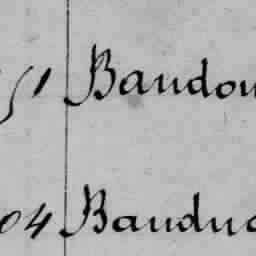 51 Baudou
04 Bauduc